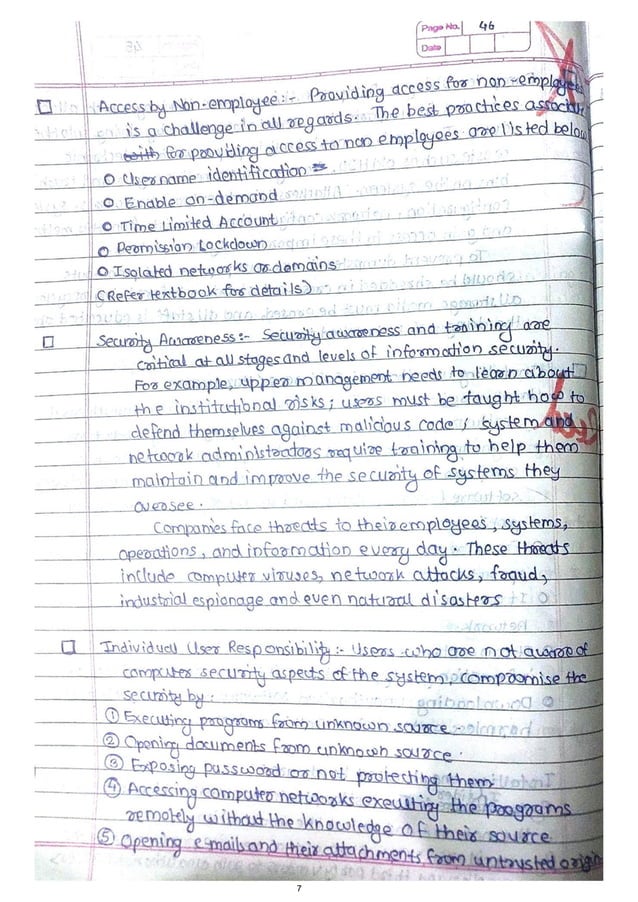 Page No. 46
Date
Access by Non-employee :- Providing access for non-employees
is a challenge in all regards. The best practices associate
with for providing access to non employees are listed below
O Username identification
O Enable on-demand
O Time Limited Account
O Permission Lockdown
O Isolated networks or domains
(Refer textbook for details)
Security Awareness :- Security awareness and training are
critical at all stages and levels of information security.
For example, upper management needs to learn about
the institutional risks ; users must be taught how to
defend themselves against malicious code ; system and
network administrators require training to help them
maintain and improve the security of systems they
oversee.
Companies face threats to their employees, systems,
operations, and information every day. These threats
include computer viruses, network attacks, fraud,
industrial espionage and even natural disasters
Individual User Responsibility :- Users who are not aware of
computer security aspects of the system, compromise the
security by :
① Executing programs from unknown source
② Opening documents from unknown source.
③ Exposing password or not protecting them
④ Accessing computer networks executing the programs
remotely without the knowledge of their source
⑤ Opening e-mails and their attachments from untrusted origin
7